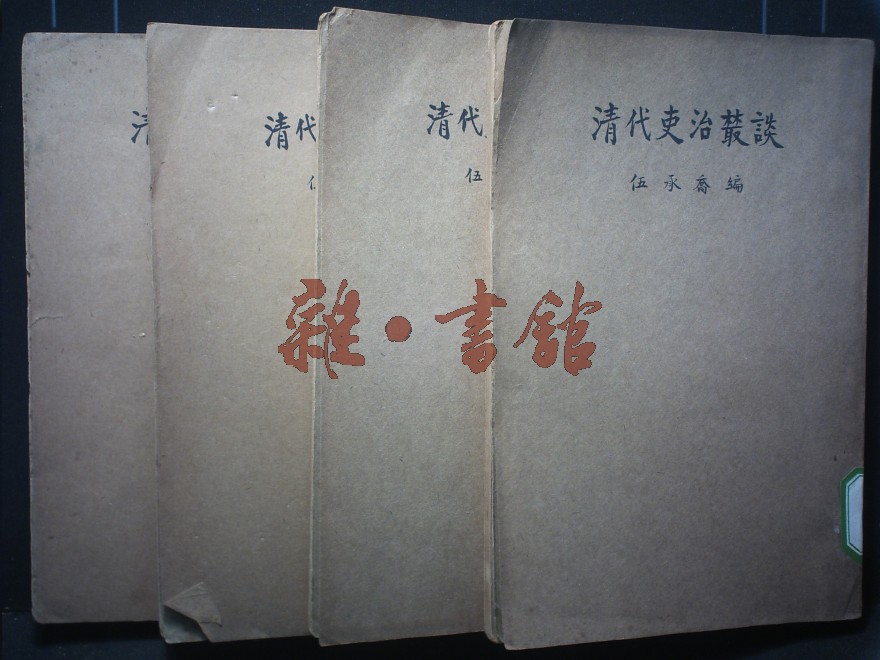 清代吏治叢談
伍承喬編
清代
伍
清代
清
雜·書館